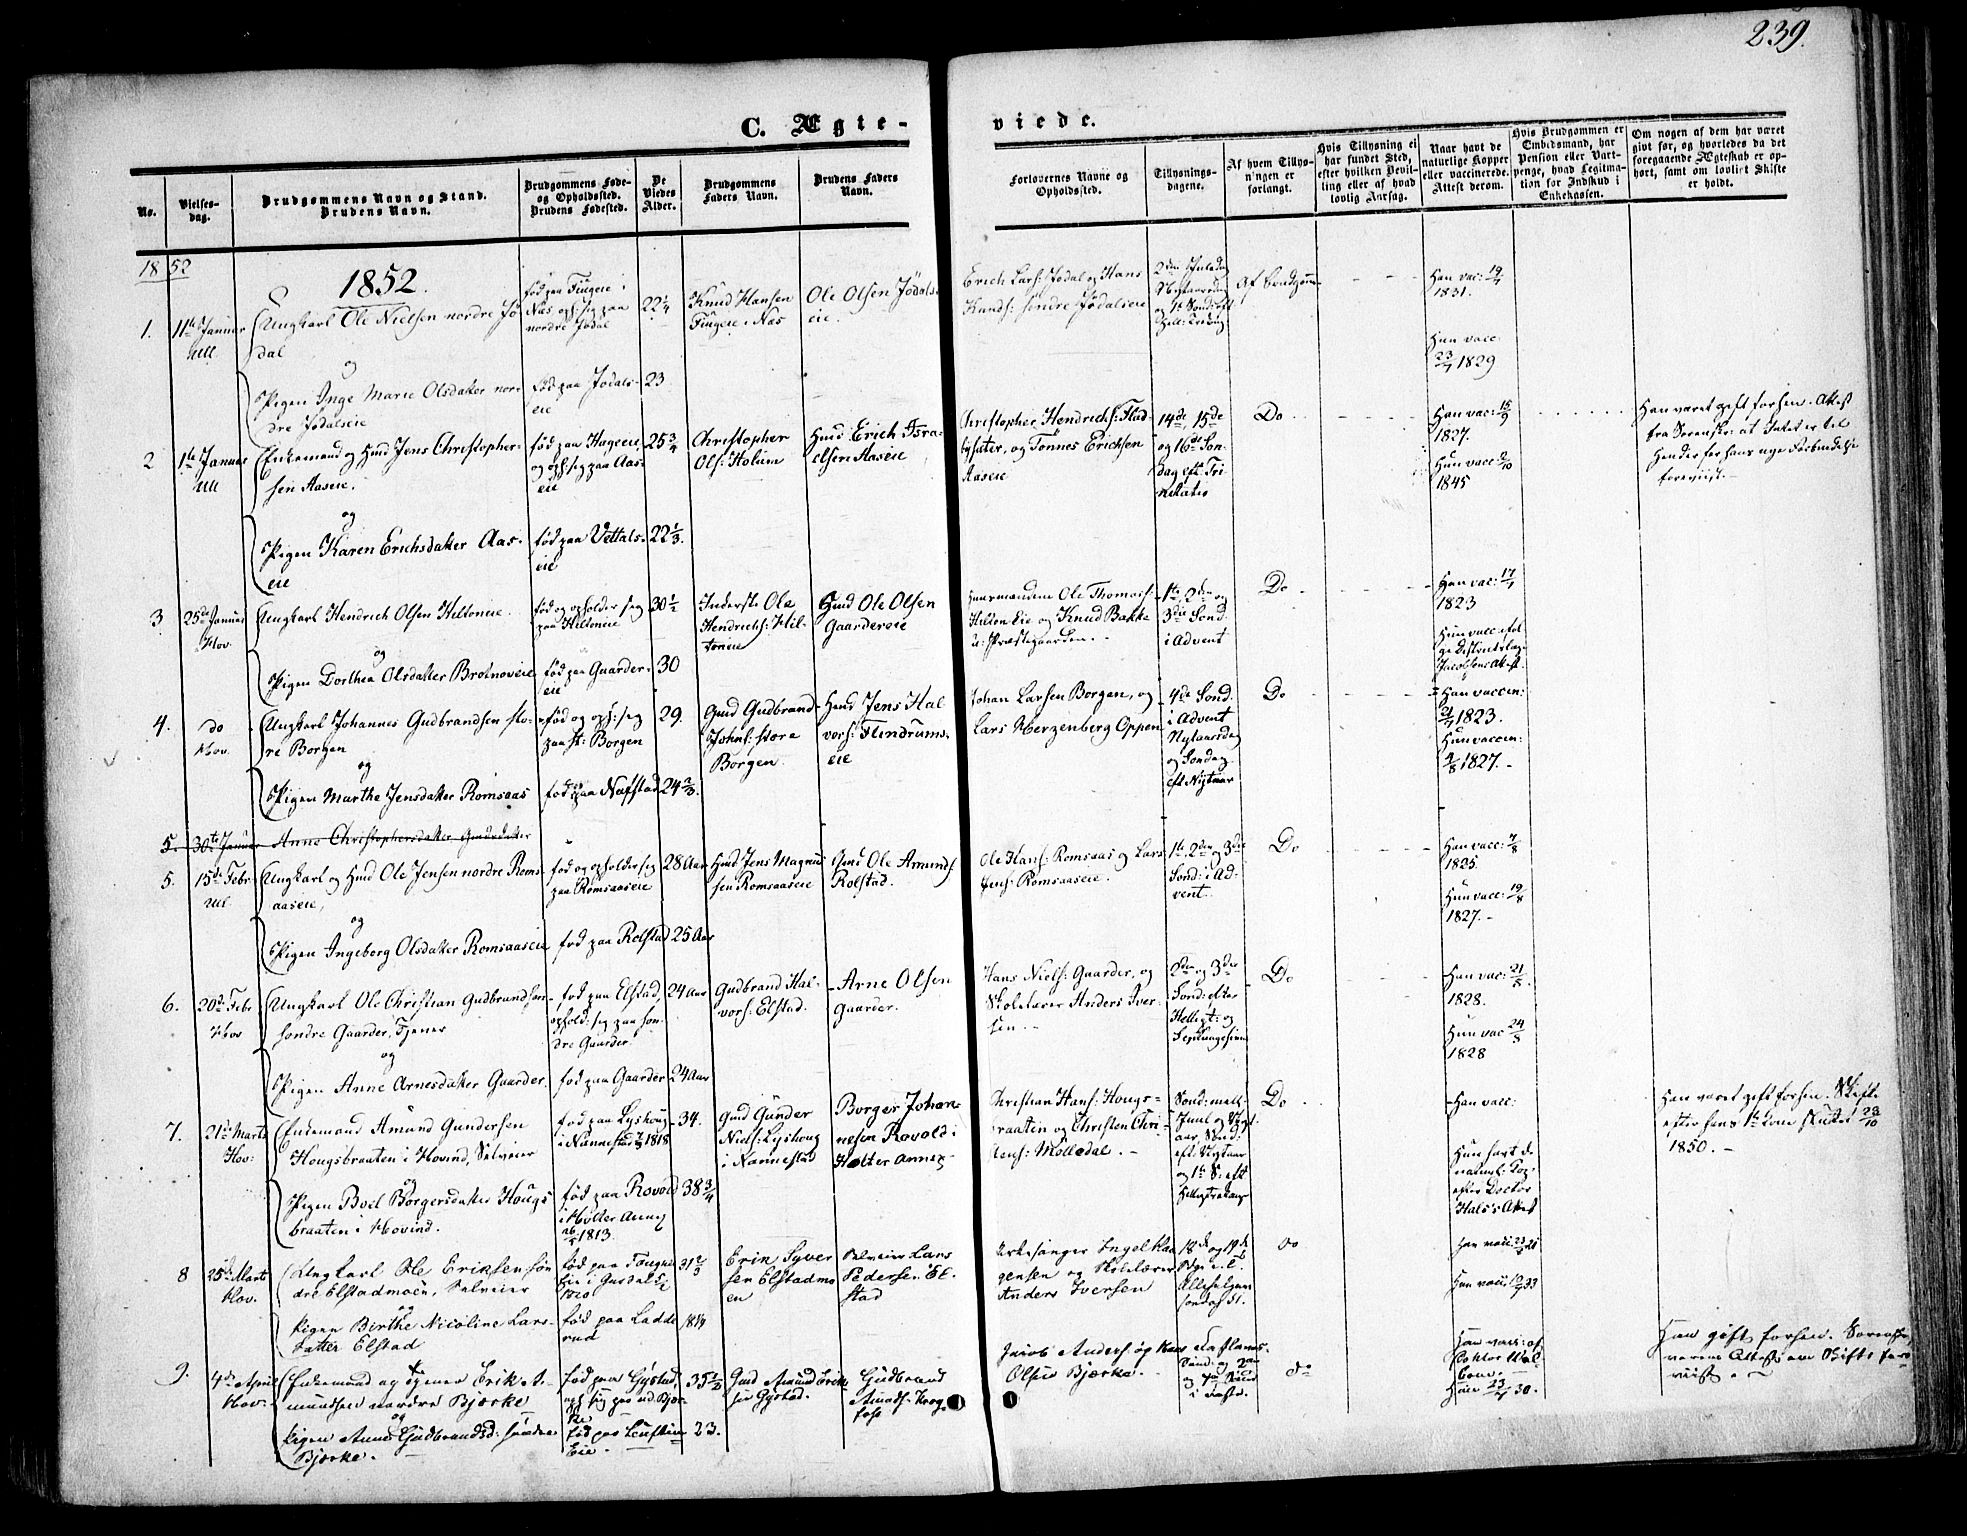 239.
C. Ægte-
viede.
No.
Vielses-
dag.
Brudgommens Navn og Stand.
Brudens Navn.
Brudgommens Føde-
og Opholdssted.
Brudens Fødested.
De
Viedes
Alder.
Brudgommens
Faders Navn.
Brudens Faders
Navn.
Forlovernes Navne og
Opholdssted.
Tillysnings-
dagene.
Af hvem Tillys-
ningen er
forlangt.
Hvis Tillysning ei
har fundet Sted,
efter hvilken Bevil-
ling eller af hvad
lovlig Aarsag.
Naar havt de
naturlige Kopper
eller vaccinerede.
Attest derom.
Hvis Brudgommen er
Embidsmand, har
Pension eller Vart-
penge, hvad Legitma-
tion for Indskud i
Enkekassen.
Om nogen af dem har været
gift før, og hvorledes da det
foregaaende Ægteskab er op-
hørt, samt om lovligt Skifte
er holdt.
1852
1852.
1.
11te Januar
Ull
Ungkarl Ole Nielsen nordre Jø
dal
og
Pigen Inge Marie Olsdatter nor-
dre Jødalseie
født paa Fingeie i
Næs oph: sig paa
nordre Jødal
født paa Jødals-
eie
22 1/4
23
Knud Hansen
Fingeie i Næs
Ole Olsen Jødals-
eie.
Erich Lars: Jødal og Hans
Knuds: søndre Jødalseie
2den Juledag
Nytaarsdag
og 1te Sond: eft.
Hell: tre Kong:
Af Brudgom-
Han vac: 19/7
1831.
Hun vacc:
23/7 1829
2
1te Januar
Ull
Enkemand og Hmd Jens Christopher-
sen Aaseie.
og
Pigen Karen Erichsdatter Aas-
eie
født paa Hageeie,
og oph: sig paa Aas-
eie
født paa Vettals-
eie
25 3/4
22 1/3.
Christopher
Ols: Holum
Hmd Erich Isra-
elsen Aaseie
Christopher Hendrichs: Flad-
bysæter, og Tønnes Erichsen
Aaseie
14de, 15de
og 16de Søn-
dag eft. Tri-
nitatis
Do
Han vac: 15/9
1827.
Hun vacc 2/10
1845
Han været gift forhen. Attest
fra Sorenskr: at Intet er til
Hinder for hans nye Forbindelse
foreviist.
3
25de Januar
Hov.
Ungkarl Hendrich Olsen Hiltoneie.
og
Pigen Dorthea Olsdatter Brotnoveie
født og opholder sig
paa Hiltoneie
født paa Gaarder-
eie
30 1/2
30
Inderste Ole
Hendrichs: Hil-
toneie
Hmd Ole Olsen
Gaardereie
Huusmændene Ole Thomas:
Hilton Eie og Knud Bakke
u: Præstegaarden.
1te, 2den og
3die Sønd.
i Advent
Do
Han vac: 17/7
1823
Hun vacc iføl
ge
Jacobsens Attest.
4.
do
Hov.
Ungkarl Johannes Gudbrandsen sto-
re Borgen
og
Pigen Marthe Jensdatter Romsaas
født og oph: sig
paa st: Borgen
født paa Næfstad
29.
24 2/3.
Gmd Gudbrand
Johns: store
Borgen.
Hmd Jens Hal
vors: Flindrums-
eie
Johan Larsen Borgen, og
Lars Herzenberg Oppen
4de Sønd.
i Advent
Nytaarsdag
og Søndag
eft Nytaar
Do
Han vaccin:
21/7 1823.
Hun vaccin:
2/8 1827.
5. 30te Januar Anne Christophersdatter
5.
15de Febr
Ull.
Ungkarl og Hmd Ole Jensen nordre Roms-
aaseie,
og
Pigen Ingeborg Olsdatter Romsaaseie
født og opholder sig
paa Romsaaseie
født paa Rolstad
28 Aar
25 Aar
Hmd Jens Magnus
sen Romsaaseie
Gmd Ole Amunds.
Rolstad.
Ole Hans: Romsaas og Lars
Jens: Romsaaseie.
1te, 2den og 3die
Sønd: i Ad-
vent.
Do
Han vacc: 7/8
1825.
Hun vacc: 19/8
1827.
6.
20de Febr
Hov
Ungkarl Ole Christian Gudbrandsen
søndre Gaarder, Tjener
og
Pigen Anne Arnesdatter Gaarder.
født paa Elstad,
ophold: sig paa søn-
dre Gaarder.
født paa Gaarder
24 Aar
24 Aar
Gudbrand Hal-
vors: Elstad.
Arne Olsen
Gaarder.
Hans Niels: Gaarder, og
Skolelærer Anders Iver-
sen.
2den og 3die
Sond: efter
Helligt: og
Septuagesima
Do
Han vac: 21/5
1828.
Hun vac 24/8
1828
7.
21de Marts
Hov:
Enkemand Amund Gundersen
Hougsbraaten i Hovind, Selveier
og
Pigen Boel Borgersdatter Hougs
braaten i Hovind.
født paa Lyshoug
i Nannestad 1818
født paa Rovold
i Holter Annex
26/5 1813.
34.
38 3/4
Gmd Gunder
Niels: Lyshoug
i Nannestad
Borger Johan-
nesen Rovold i
Holter Annex
Christian Hans: Hougs-
braaten og Christen Chri-
stens: Mølledal.
Sond: mell.
Juul og Nyt-
aar, Sond:
eft. Nytaar
og 1te S: eft
Helligtrekonge
Do
Han vacc:
Hun havt de
naturl: Kop-
efter Doctor
Hals's Attest
Han været gift forhen. Skifte
efter hans 1te Kone sluttet 23/10
1850.
8
25de Marts
Hov.
Ungkarl Ole Eriksen søn
dre Elstadmoen, Selveier
og
Pigen Birthe Nicoline Lars-
datter Elstad
født paa
Eie i
født paa Ladde
rud
31 2/3
18 1/4
Erik Syver
sen Elstadmo
en
Selveier Lars
Pedersen El-
stad
Kirkesanger Engel Haa
gensen og Skolelærer
Anders Iversen
18de og 19de
Allehelgens
søndag 51.
do
Han vacc. 23/5 21
Hun vacc. 33
9.
4de April
Hov.
Enkemand og Tjener Erik A-
mundsen nordre Bjørke
og
Pigen Anne Gudbrandsd: søndre
Bjørke.
født paa Gystad,
oph sig paa nd Bjør-
ke
født paa
Eie.
35 1/2
23.
Gmd Amund Erik-
sen Gystad.
Gudbrand
Amunds: Krog-
foss
Jacob Anders: og Hans
Olsen Bjørke.
Fastelavns-
Sønd: og 2den
og Sønd
i Faste.
do
Han vacc: af
Doktor
Hun 30.
Han gift forhen. Sorenskri-
verens Attest om Skifte fore-
viist.